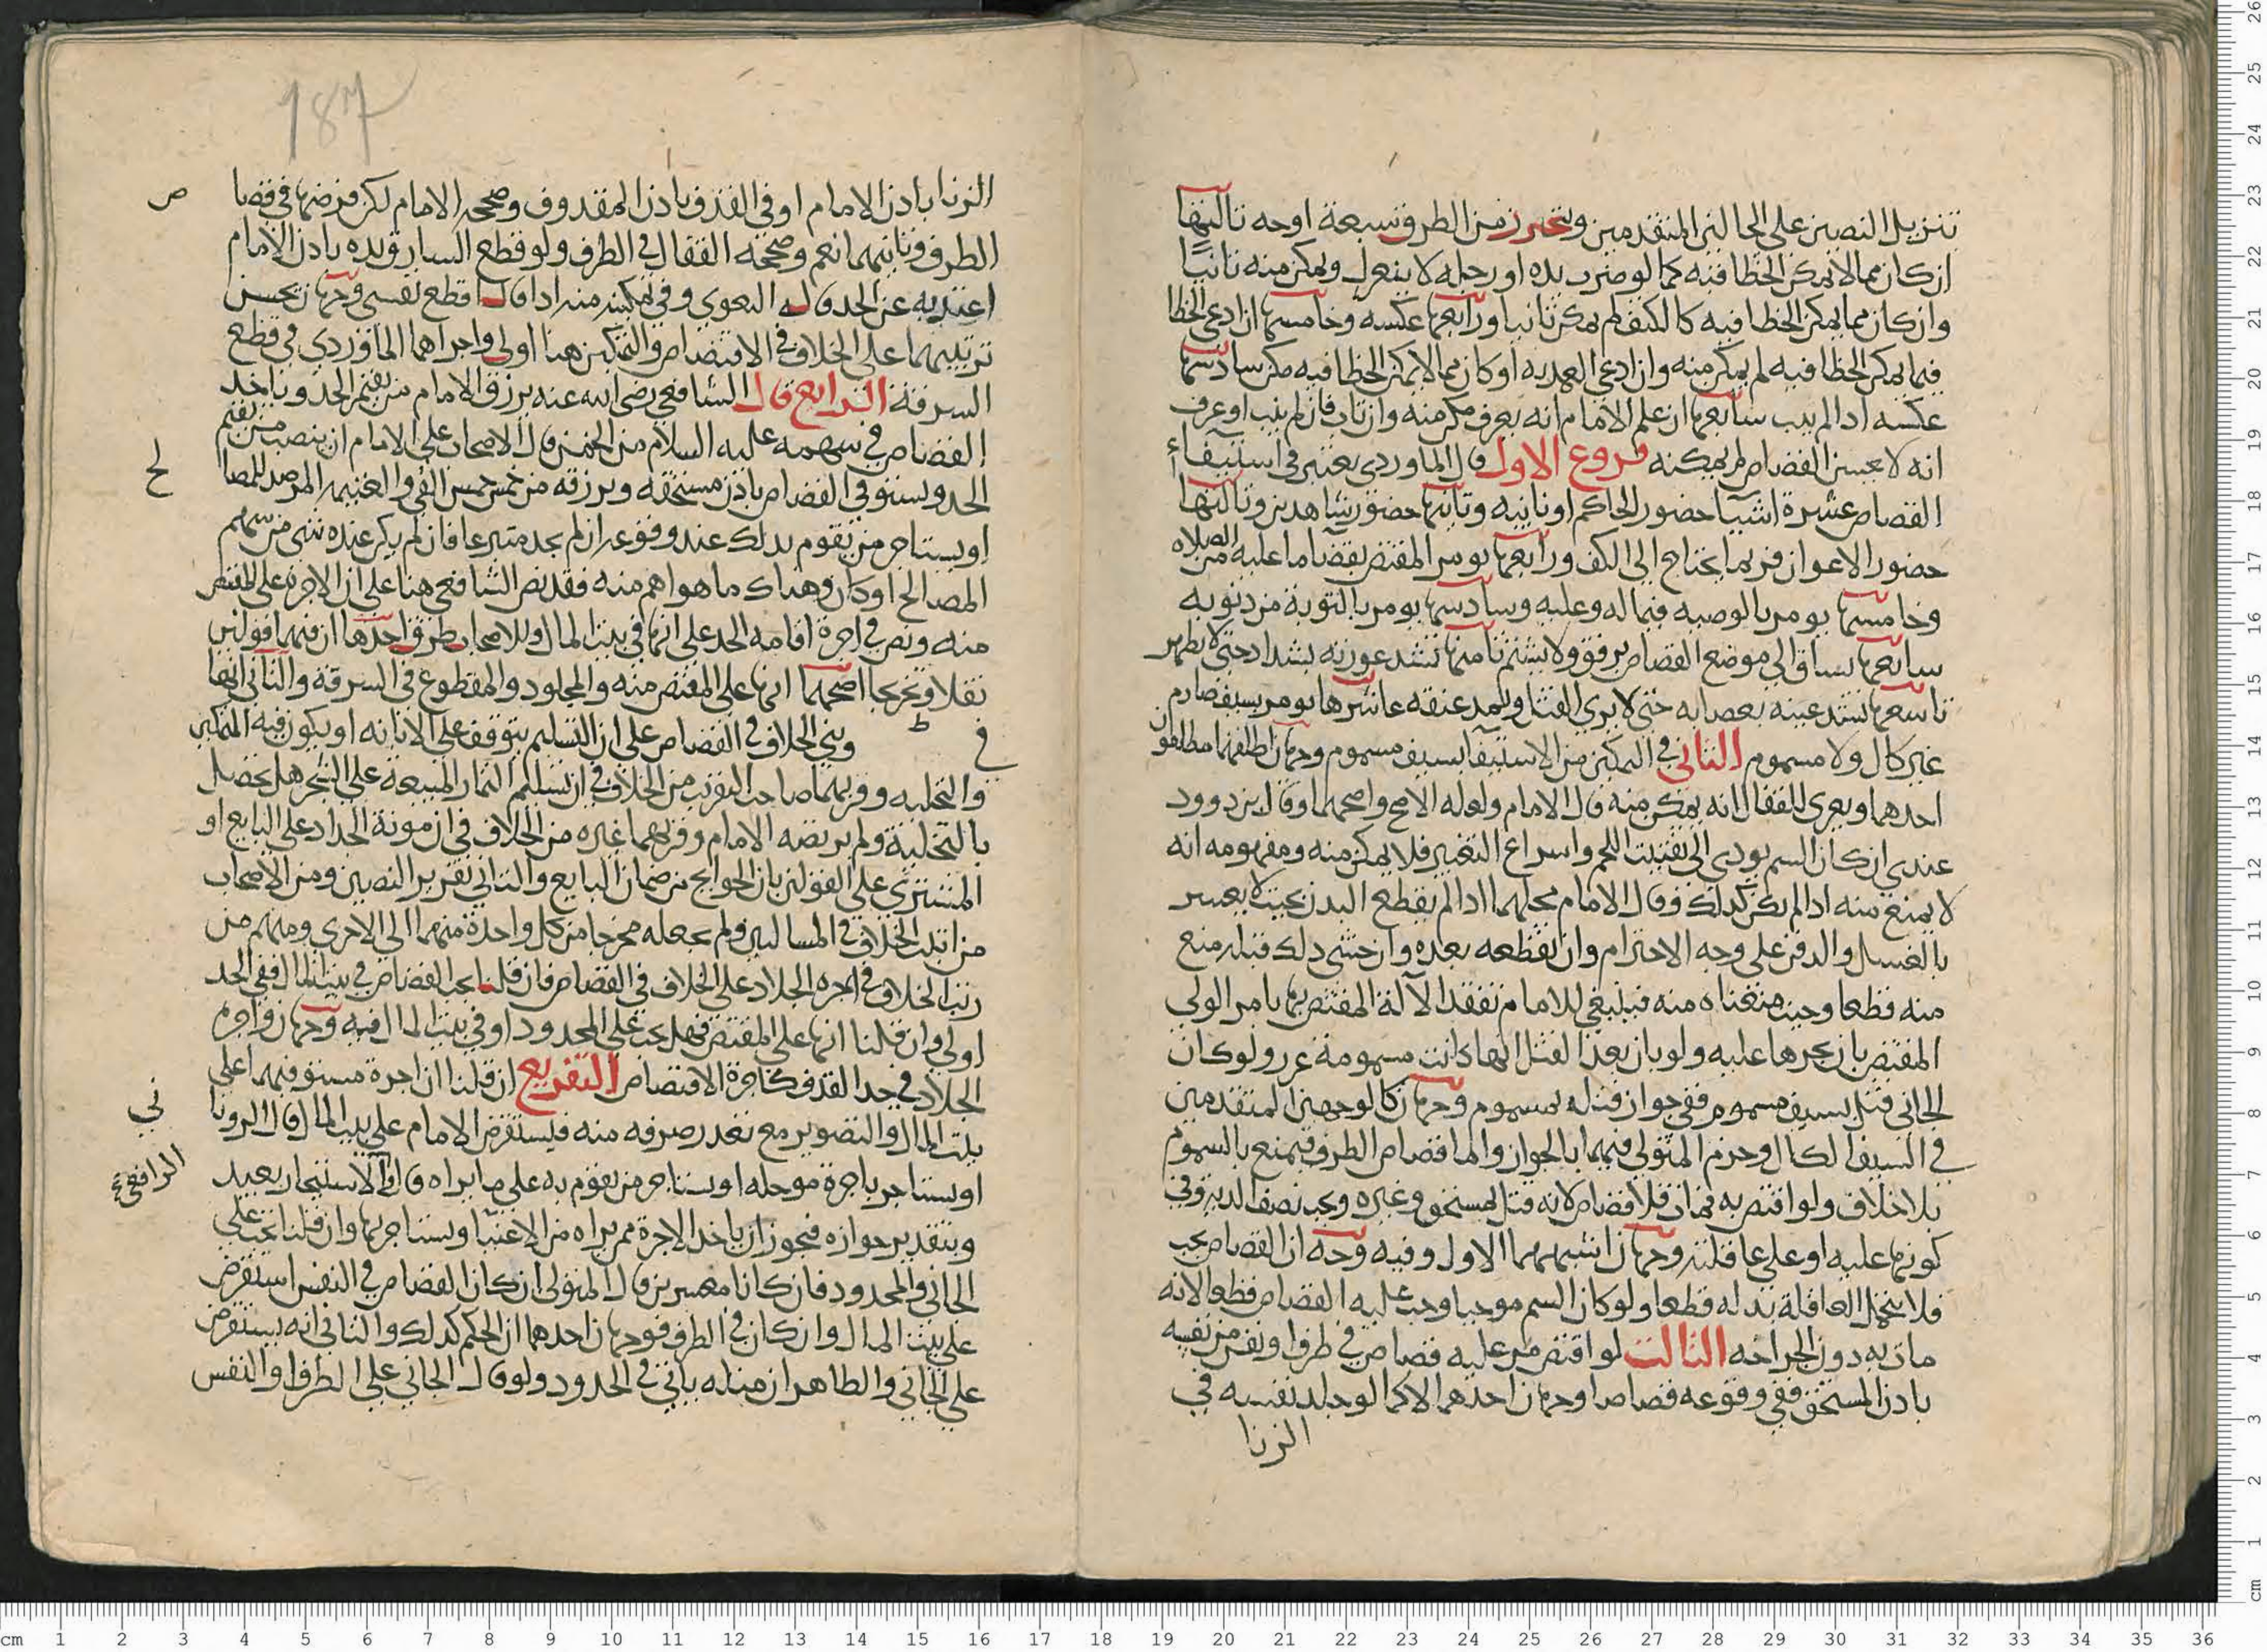 تنزيل النصين على الحالين المتقدمين ويتحرر من الطرق سبعة اوجه ثالثها
ان كان مما لا يمكن الخطا فيه كما لو ضرب يده او رجله لا ينعزل ويمكن منه ثانيا
وان كان مما يمكن الخطا فيه كالكتف لم يمكن ثانيا ورابعها عكسه وخامسها ان ادعى الخطا
فيما يمكن الخطا فيه لم يمكن منه وان ادعى العمد به او كان مما لا يمكن الخطا فيه مكن سادسها
عكسه اذا لم يتب سابعها ان علم الامام انه يعرف مكن منه وان تاب فان لم يتب او عرف
انه لا يحسن القصاص لم يمكنه فروع الاول قال الماوردي يعتبر في استيفاء
القصاص عشرة اشيا حضور الحاكم او نايبه وثانيها حضور شاهدين وثالثها
حضور الاعوان فربما يحتاج الى الكف ورابعها يومر المقتص بقضا ما عليه من الصلاه
وخامسها يومر بالوصيه فيما له وعليه وسادسها يومر بالتوبة من ذنوبه
سابعها يساق الى موضع القصاص برفق ولا يشتم ثامنها تشد عورته بشداد حتى لا تظهر
تاسعها تشد عينه بعصابه حتى لا يرى القتل ويمد عنقه عاشرها يومر بسيف صارم
غير كال ولا مسموم الثاني في التمكين من الاستيفا بسيف مسموم وجهان اطلقهما مطلقون
احدهما ويعزى للقفال انه يمكن منه قال الامام ولعله الاصح واصحهما وقال
عندي ان كان السم يودي الى تفتيت اللحم واسراع التغيير فلا يمكن منه ومفهومه انه
لا يمنع منه اذا لم يكن كذلك وقال الامام محلهما اذا لم يقطع البدن بحيث لا يعسر
بالغسل والدفن على وجه الاحترام وان يقطعه بعده وان خشي ذلك قبله منع
منه قطعا وحيث منعناه منه فينبغي للامام تفقد الآلة المقتص بها يامر الولي
المقتص بان يجرها عليه ولو بان بعد القتل انها كانت مسمومة عزر ولو كان
الجاني قتل بسيف مسموم ففي جواز قتله بمسموم وجهان كالوجهين المتقدمين
في السيف الكال وجزم المتولي فيهما بالجواز واما قصاص الطرف فيمنع بالسموم
بلا خلاف ولو اقتص به فمات فلا قصاص لانه قتل بمستحق وغيره ويجب نصف الدية وفي
كونها عليه او على عاقلته وجهان اشبههما الاول وفيه وجه ان القصاص يجب
فلا يتحمل العاقلة بدله قطعا ولو كان السم موجبا وجب عليه القصاص قطعا لانه
مات به دون الجراحه الثالث لو اقتص من عليه قصاص في طرف او نفس من نفسه
باذن المستحق ففي وقوعه قصاصا وجهان احدهما لا كما لو جلد نفسه في
الزنا
187
الزنا باذن الامام او في القذف باذن المقذوف وصححه الامام لكن فرضها في قضا
الطرف وثانيهما نعم وصححه القفال في الطرف ولو قطع السارق يده باذن الامام
اعتد به عن الحد قاله البغوي وفي تمكينه منه اذا قال اقطع نفسي وجهان يحسن
ترتيبهما على الخلاف في الاقتصاص والتمكين هنا اولى واجراهما الماوردي في قطع
السرقة الرابع قال الشافعي رضي الله عنه يرزق الامام من يقيم الحد وياخذ
القصاص في سهمه عليه السلام من الخمس قال الاصحاب على الامام ان ينصب من يقيم
الحد ويستوفي القصاص باذن مستحقه ويرزقه من خمس خمس الفي والغنيمه المرصد للمصا
لح
او يستاجر من يقوم بذلك عند وقوعه ان لم يجد متبرعا فان لم يكن عنده شي من سهم
المصالح او كان وهناك ما هو اهم منه فقد نص الشافعي هنا على ان الاجرة على المقتص
منه ونص في اجرة اقامه الحد على انها في بيت المال وللاصحاب طرق احدها ان فيهما قولين
نقلا وتخريجا اصحهما انها على المقتص منه والمجلود والمقطوع في السرقة والثاني انها
في ط وبني الخلاف في القصاص على ان التسليم يتوقف على الابانه او يكون فيه التمكين
والتخليه وقربهما صاحب التقريب من الخلاف في ان تسليم الثمار المبيعة على الشجر هل يحصل
بالتخلية ولم يرتضه الامام وقربهما غيره من الخلاف في ان مونة الجداد على البايع او
المشتري على القولين بان الجوايح من ضمان البايع والثاني تقرير النصين ومن الاصحاب
من اثبت الخلاف في المسالتين ولم يجعله مخرجا من كل واحدة منهما الى الاخرى ومنهم من
رتب الخلاف في اجره الجلاد على الخلاف في القصاص فان قلنا يجب القصاص في بيت المال ففي الحد
اولى وان قلنا انها على المقتص فهل يجب على المحدود او في بيت المال فيه وجهان واجرة
الجلاد في حد القذف كاجرة الاقتصاص التفريع ان قلنا ان اجرة مستوفيهما على
بيت المال والتصوير مع تعذر صرفه منه فيستقرض الامام على بيت المال قال الرويا
ني
او يستاجر باجرة موجله او يستاجر من يقوم به على ما يراه قال والاستيجار بعيد
الرافعي
وبتقدير جوازه فيجوز ان ياخذ الاجرة ممن يراه من الاغنيا ويستاجر بها وان قلنا تجب على
الجاني والمحدود فان كانا معسرين قال المتولي ان كان القصاص في النفس استقرض
على بيت المال وان كان في الطرف فوجهان احدهما ان الحكم كذلك والثاني انه يستقرض
على الجاني والظاهر ان مثله ياتي في الحدود ولو قال الجاني على الطرف او النفس